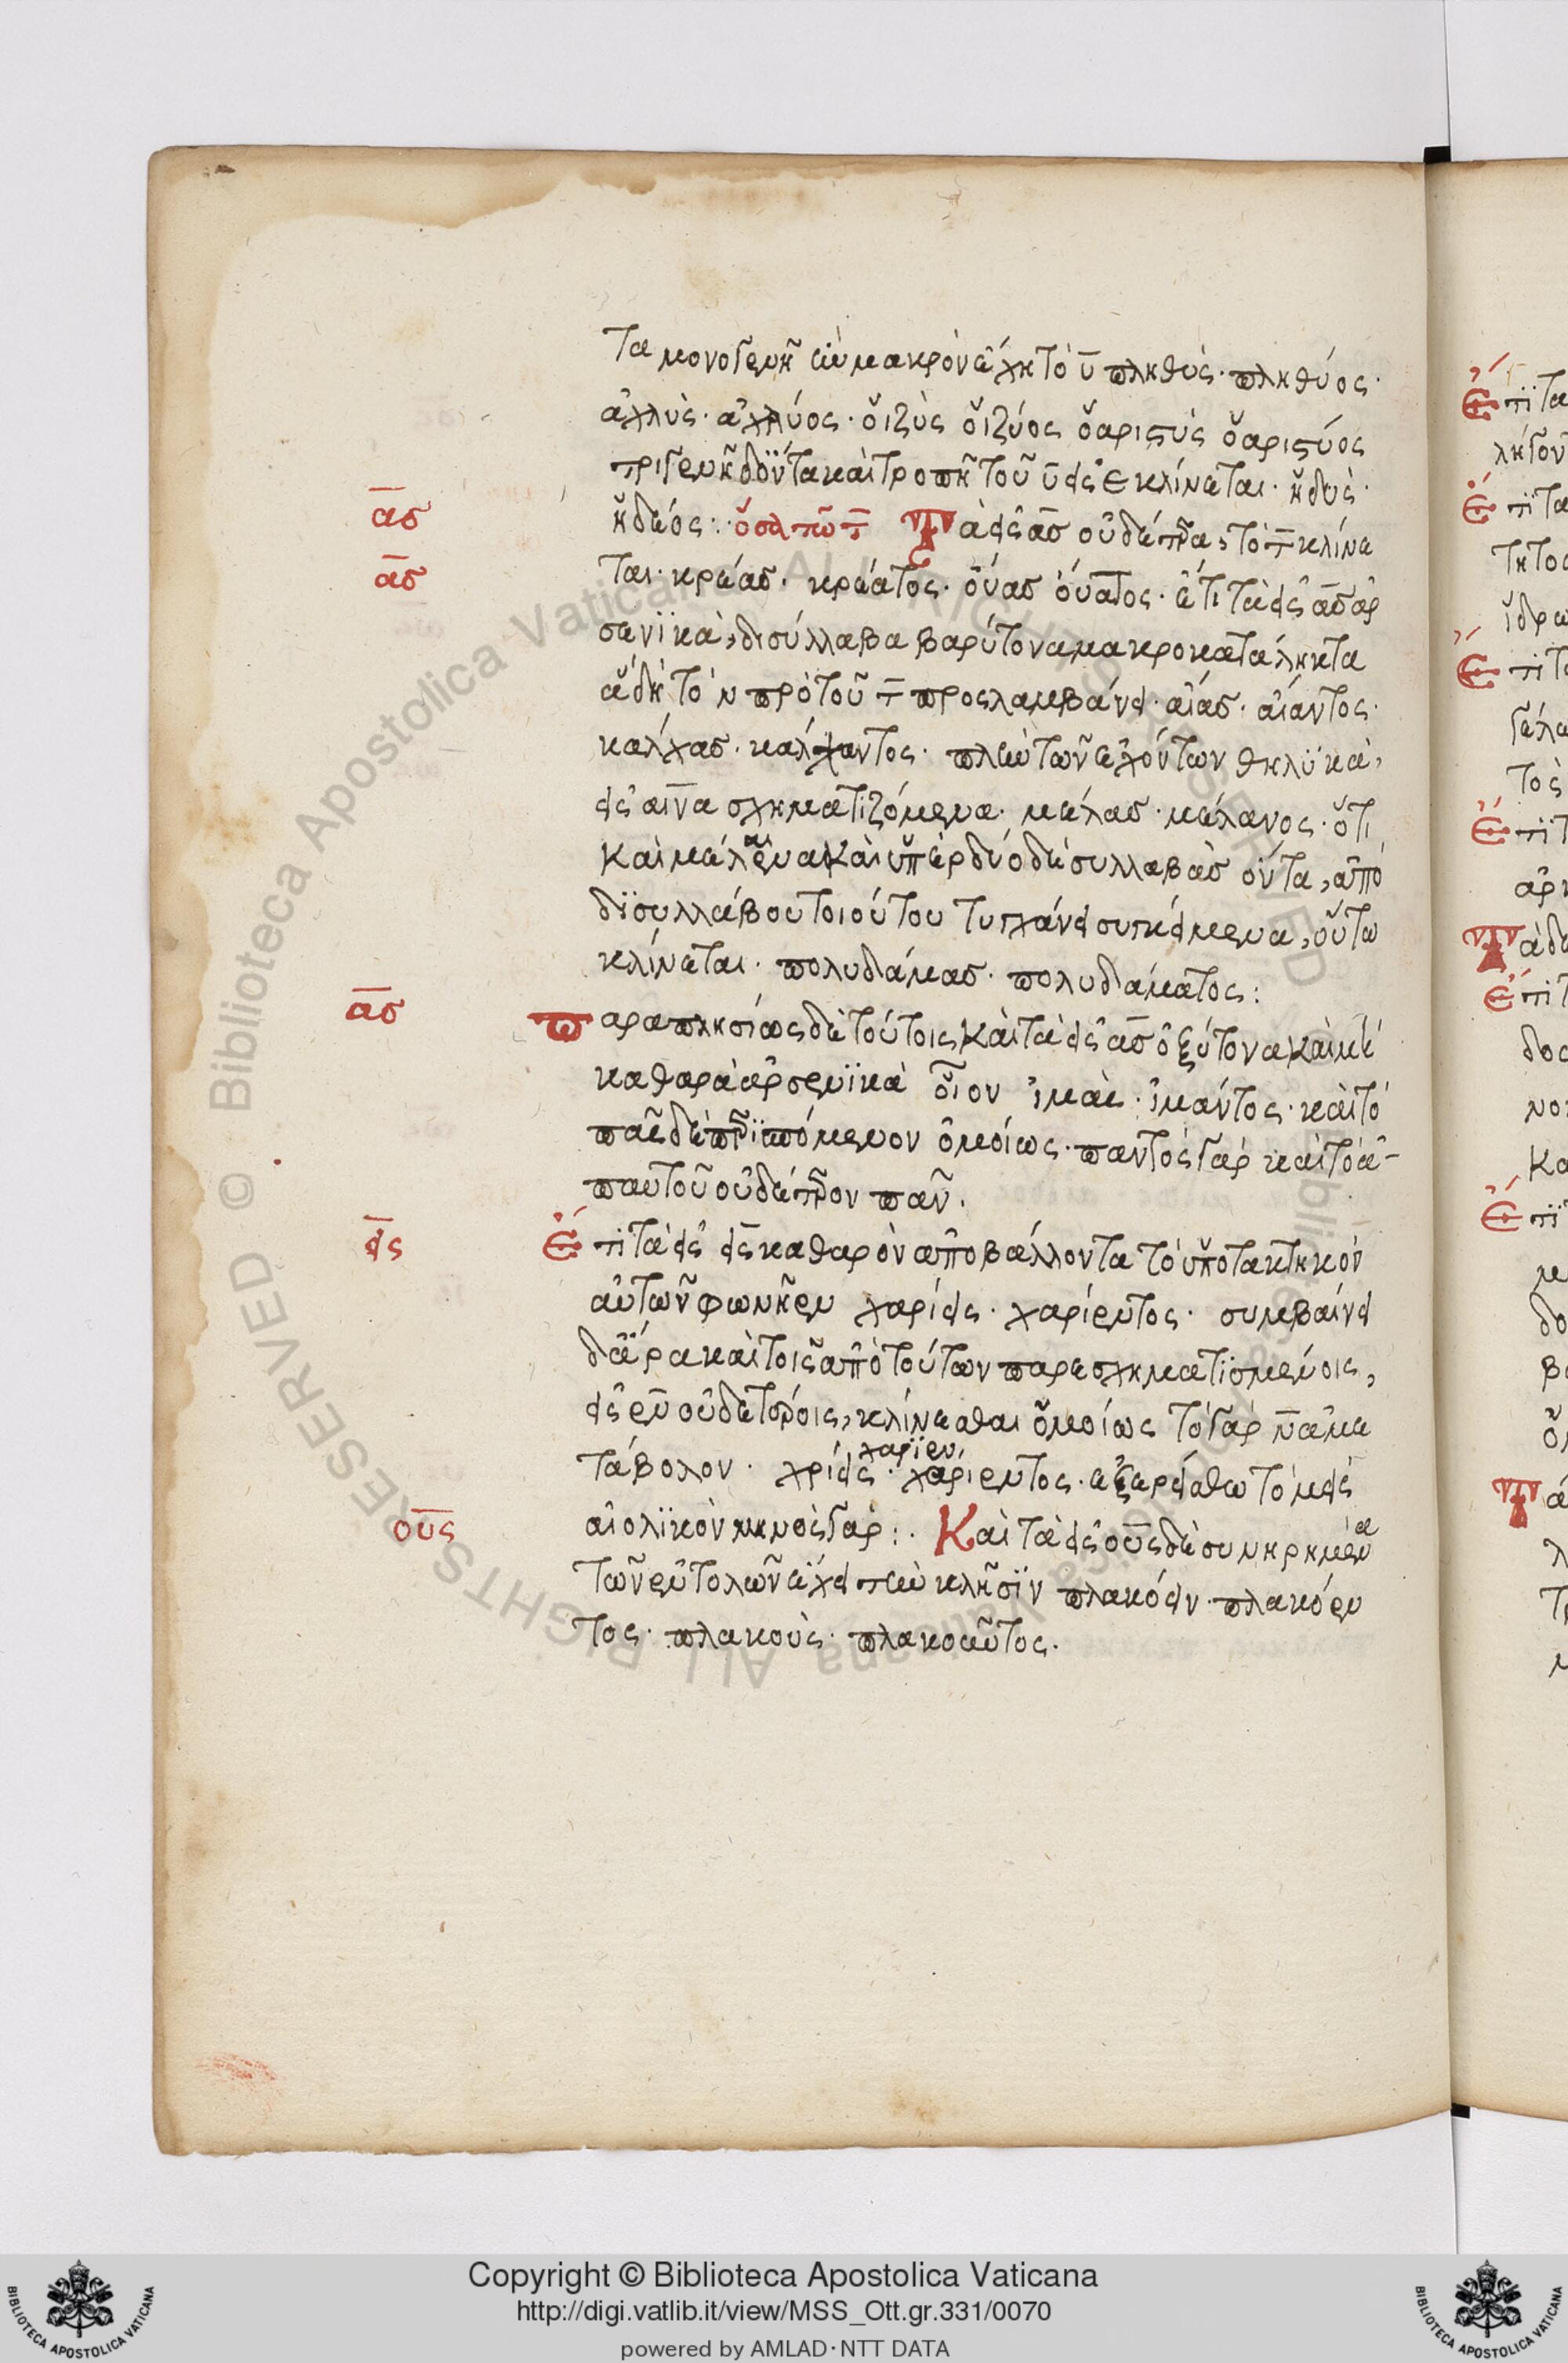 τα μονογενῆ ἐὺ μακρὸν ἔχη τὸ ῡ πληθὺς· πληθύος·
ἀχλὺς· ἀχλύος· ὀϊζὺς ὀϊζύος ὀαριστὺς ὀαριστύος
τριγενῆ δ' ὄντα καὶ τροπῆ τοῦ ῡ εἰς ε κλίνεται· ἡδὺς·
ἡδέος:· ὅσα τῶ τ̄ Τὰ εἰς ᾱσ οὐδέτερα, τὸ τ̄ κλίνε
ται· κρέασ· κρέατος· οὖασ οὔατος· ἔτι τὰ εἰς ᾱσ ἀρ
σενϊκὰ, δισύλλαβα βαρύτονα μακροκατάληκτα
ἃ δὴ τὸ ν πρὸ τοῦ τ̄ προσλαμβάνει· αἴασ· αἴαντος·
κάλχασ· κάλχαντος· πλὴν τῶν ἐχόντων θηλϋκὰ,
εἰς αινα σχηματιζόμενα· μέλασ· μέλανος· ὅτι
καὶ μέλαινα καὶ ὑπὲρ δύο δὲ συλλαβὰσ ὄντα, ἀπὸ
δϊσυλλάβου τοιούτου τυγχάνει συγκείμενα, οὕτω
κλίνεται· πολυδάμασ· πολυδάματος:
Παραπλησίως δὲ τούτοις καὶ τὰ εἰς ᾱσ ὀξύτονα καὶ μὴ
καθαρὰ ἀρσενϊκὰ οἷον ἱμὰς· ἱμάντος· καὶ τὸ
πᾶς δὲ περϊσπόμενον ὁμοίως· παντὸς γὰρ καὶ τὸ ἀ-
π αυτοῦ οὐδέτερον πᾶν.
Ἐπι τὰ εἰς εις καθαρὸν ἀποβάλλοντα τὸ ὑποτακτηκὸν
αὐτῶν φωνῆεν χαρίεις· χαρίεντος· συμβαίνει
δ' ἄρα καὶ τοῖς ἀπὸ τούτων παρεσχηματϊσμένοις,
εἰς εν οὐδετέροις, κλίνεσθαι ὁμοίως τὸ γὰρ ν̄ ἀμε
τάβολον· χρίεις· χαρίεν, χαρίεντος· ἐξαρείσθω τὸ μεὶς
αἰολϊκὸν μηνὸς γάρ:· Καὶ τὰ εἰς ους δὲ συνηρημένα
τῶν ἐντολῶν ἔχει τὴν κλῆσϊν πλακόειν· πλακόεν
τος· πλακοὺς· πλακοῦντος·
ᾱσ
ᾱσ
ᾱσ
εις
ους
Copyright © Biblioteca Apostolica Vaticana
http://digi.vatlib.it/view/MSS_Ott.gr.331/0070
powered by AMLAD·NTT DATA
BIBLIOTECA APOSTOLICA VATICANA
BIBLIOTECA APOSTOLICA VATICANA